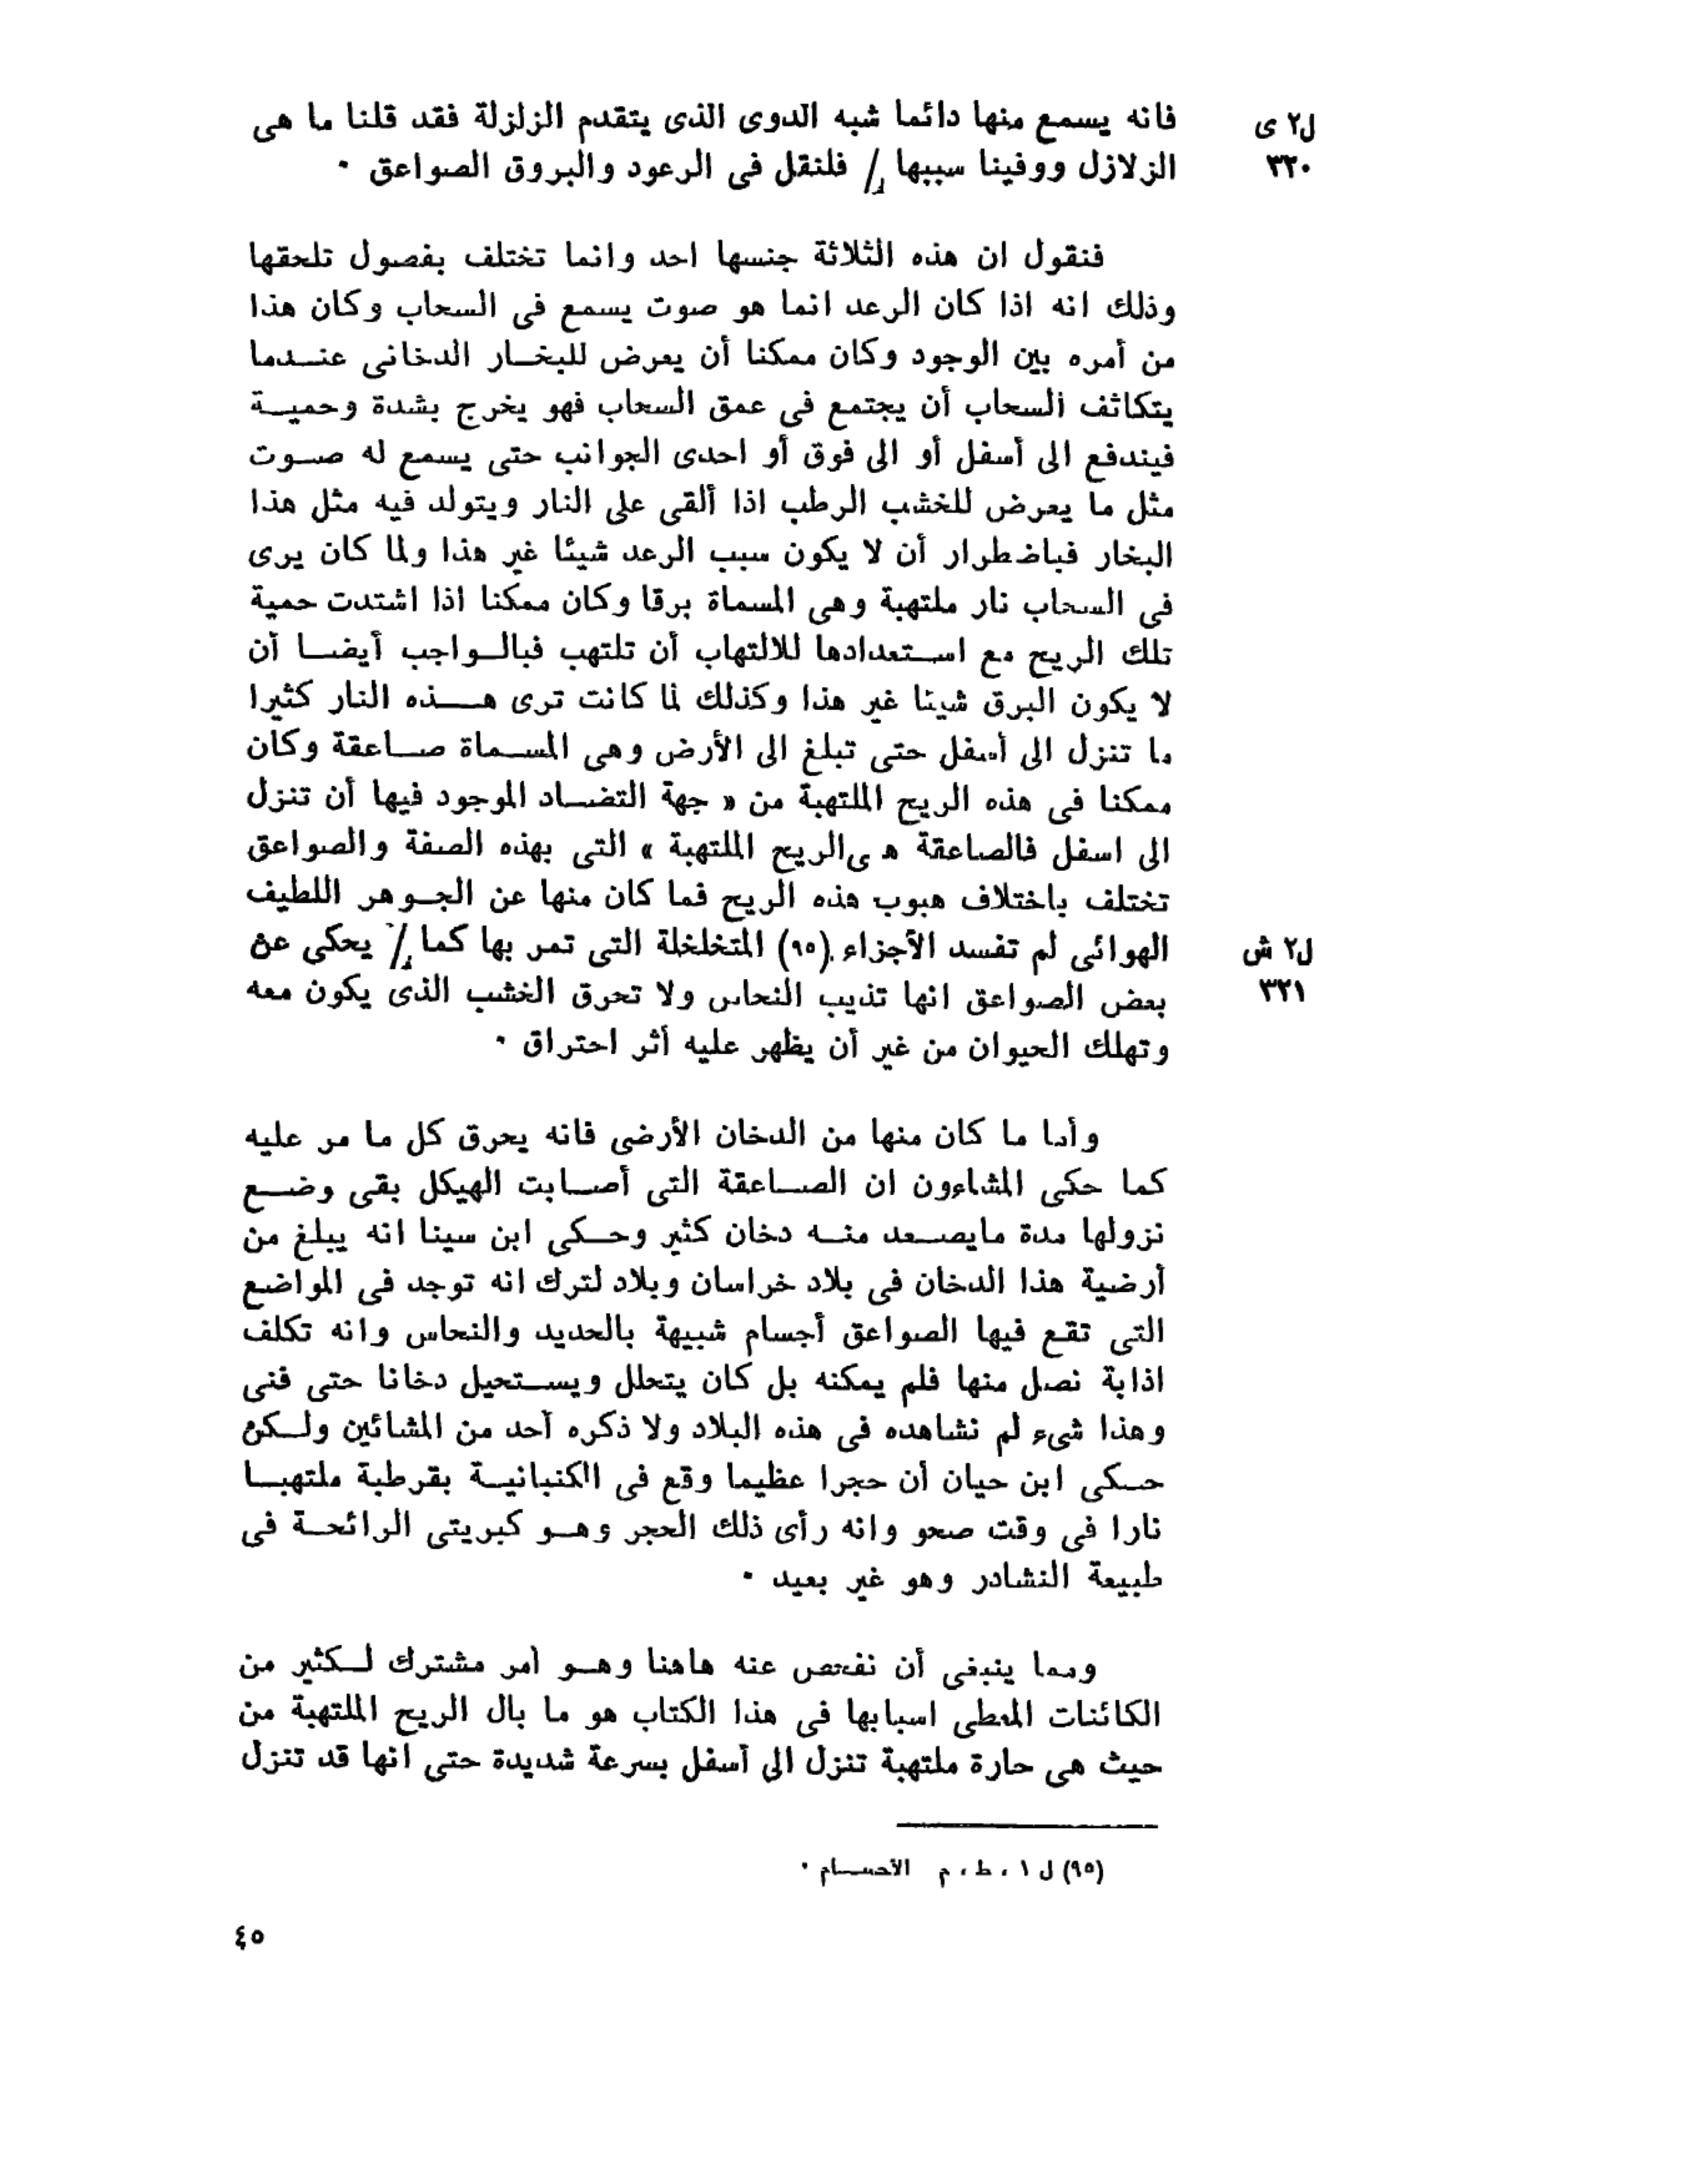 فانه يسمع منها دائما شبه الدوى الذى يتقدم الزلزلة فقد قلنا ما هى
ل٢ ى
الزلازل ووفينا سببها / فلنقل فى الرعود والبروق الصواعق ٠
٣٢٠
فنقول ان هذه الثلاثة جنسها احد وانما تختلف بفصول تلحقها
وذلك انه اذا كان الرعد انما هو صوت يسمع فى السحاب وكان هذا
من أمره بين الوجود وكان ممكنا أن يعرض للبخــار الدخانى عنــدما
يتكاثف السحاب أن يجتمع فى عمق السحاب فهو يخرج بشدة وحميــة
فيندفع الى أسفل أو الى فوق أو احدى الجوانب حتى يسمع له صــوت
مثل ما يعرض للخشب الرطب اذا ألقى على النار ويتولد فيه مثل هذا
البخار فباضطرار أن لا يكون سبب الرعد شيئا غير هذا ولما كان يرى
فى السحاب نار ملتهبة وهى المسماة برقا وكان ممكنا اذا اشتدت حمية
تلك الريح مع اســتعدادها للالتهاب أن تلتهب فبالــواجب أيضــا أن
لا يكون البرق شيئا غير هذا وكذلك لما كانت ترى هــذه النار كثيرا
ما تنزل الى أسفل حتى تبلغ الى الأرض وهى المســماة صــاعقة وكان
ممكنا فى هذه الريح الملتهبة من « جهة التضــاد الموجود فيها أن تنزل
الى اسفل فالصاعقة ه ىالريح الملتهبة » التى بهذه الصفة والصواعق
تختلف باختلاف هبوب هذه الريح فما كان منها عن الجــوهر اللطيف
الهوائى لم تفسد الأجزاء (٩٥) المتخلخلة التى تمر بها كما / يحكى عن
ل٢ ش
بعض الصواعق انها تذيب النحاس ولا تحرق الخشب الذى يكون معه
٣٢١
وتهلك الحيوان من غير أن يظهر عليه أثر احتراق ٠
وأما ما كان منها من الدخان الأرضى فانه يحرق كل ما مر عليه
كما حكى المشاءون ان الصــاعقة التى أصــابت الهيكل بقى وضــع
نزولها مدة مايصــعد منــه دخان كثير وحــكى ابن سينا انه يبلغ من
أرضية هذا الدخان فى بلاد خراسان وبلاد لترك انه توجد فى المواضع
التى تقع فيها الصواعق أجسام شبيهة بالحديد والنحاس وانه تكلف
اذابة نصل منها فلم يمكنه بل كان يتحلل ويســتحيل دخانا حتى فنى
وهذا شىء لم نشاهده فى هذه البلاد ولا ذكره أحد من المشائين ولــكن
حــكى ابن حيان أن حجرا عظيما وقع فى الكنبانيــة بقرطبة ملتهبــا
نارا فى وقت صحو وانه رأى ذلك الحجر وهــو كبريتى الرائحــة فى
طبيعة النشادر وهو غير بعيد ٠
ومما ينبغى أن نفحص عنه هاهنا وهــو امر مشترك لــكثير من
الكائنات المعطى اسبابها فى هذا الكتاب هو ما بال الريح الملتهبة من
حيث هى حارة ملتهبة تنزل الى أسفل بسرعة شديدة حتى انها قد تنزل
(٩٥) ل ١ ، ط ، م الأحســام ٠
٤٥